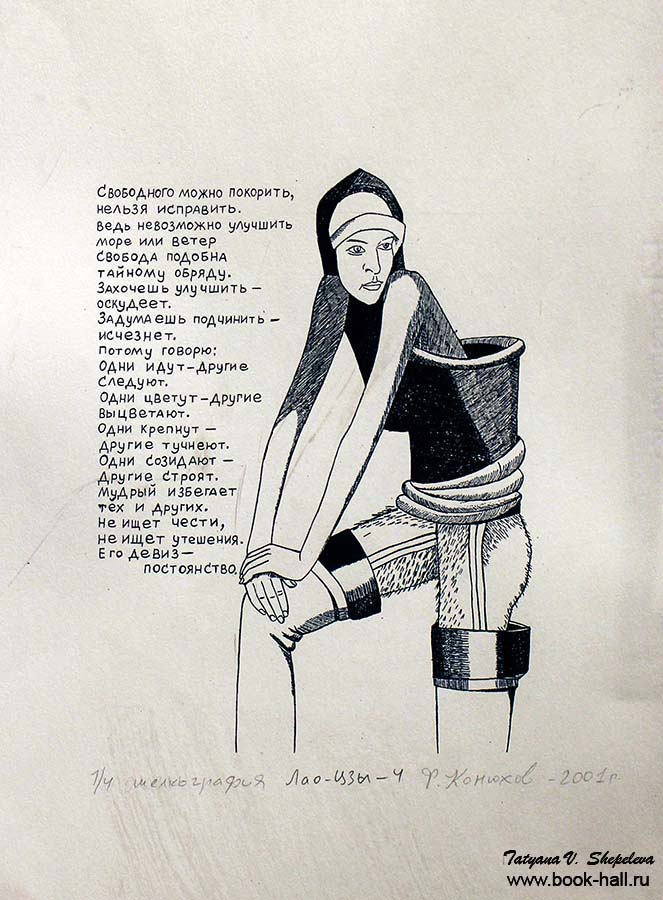 Свободного можно покорить,
нельзя исправить.
Ведь невозможно улучшить
море или ветер
Свобода подобна
тайному обряду.
Захочешь улучшить —
оскудеет.
Задумаешь подчинить —
исчезнет.
Потому говорю:
Одни идут - другие
следуют.
Одни цветут - другие
выцветают.
Одни крепнут —
другие тучнеют.
Одни созидают —
другие строят.
Мудрый избегает
тех и других.
Не ищет чести,
не ищет утешения.
Его девиз —
постоянство.
1/4 шелкография Лао-Цзы-4 Ф. Конюхов - 2001 г.
Tatyana V. Shepeleva
www.book-hall.ru